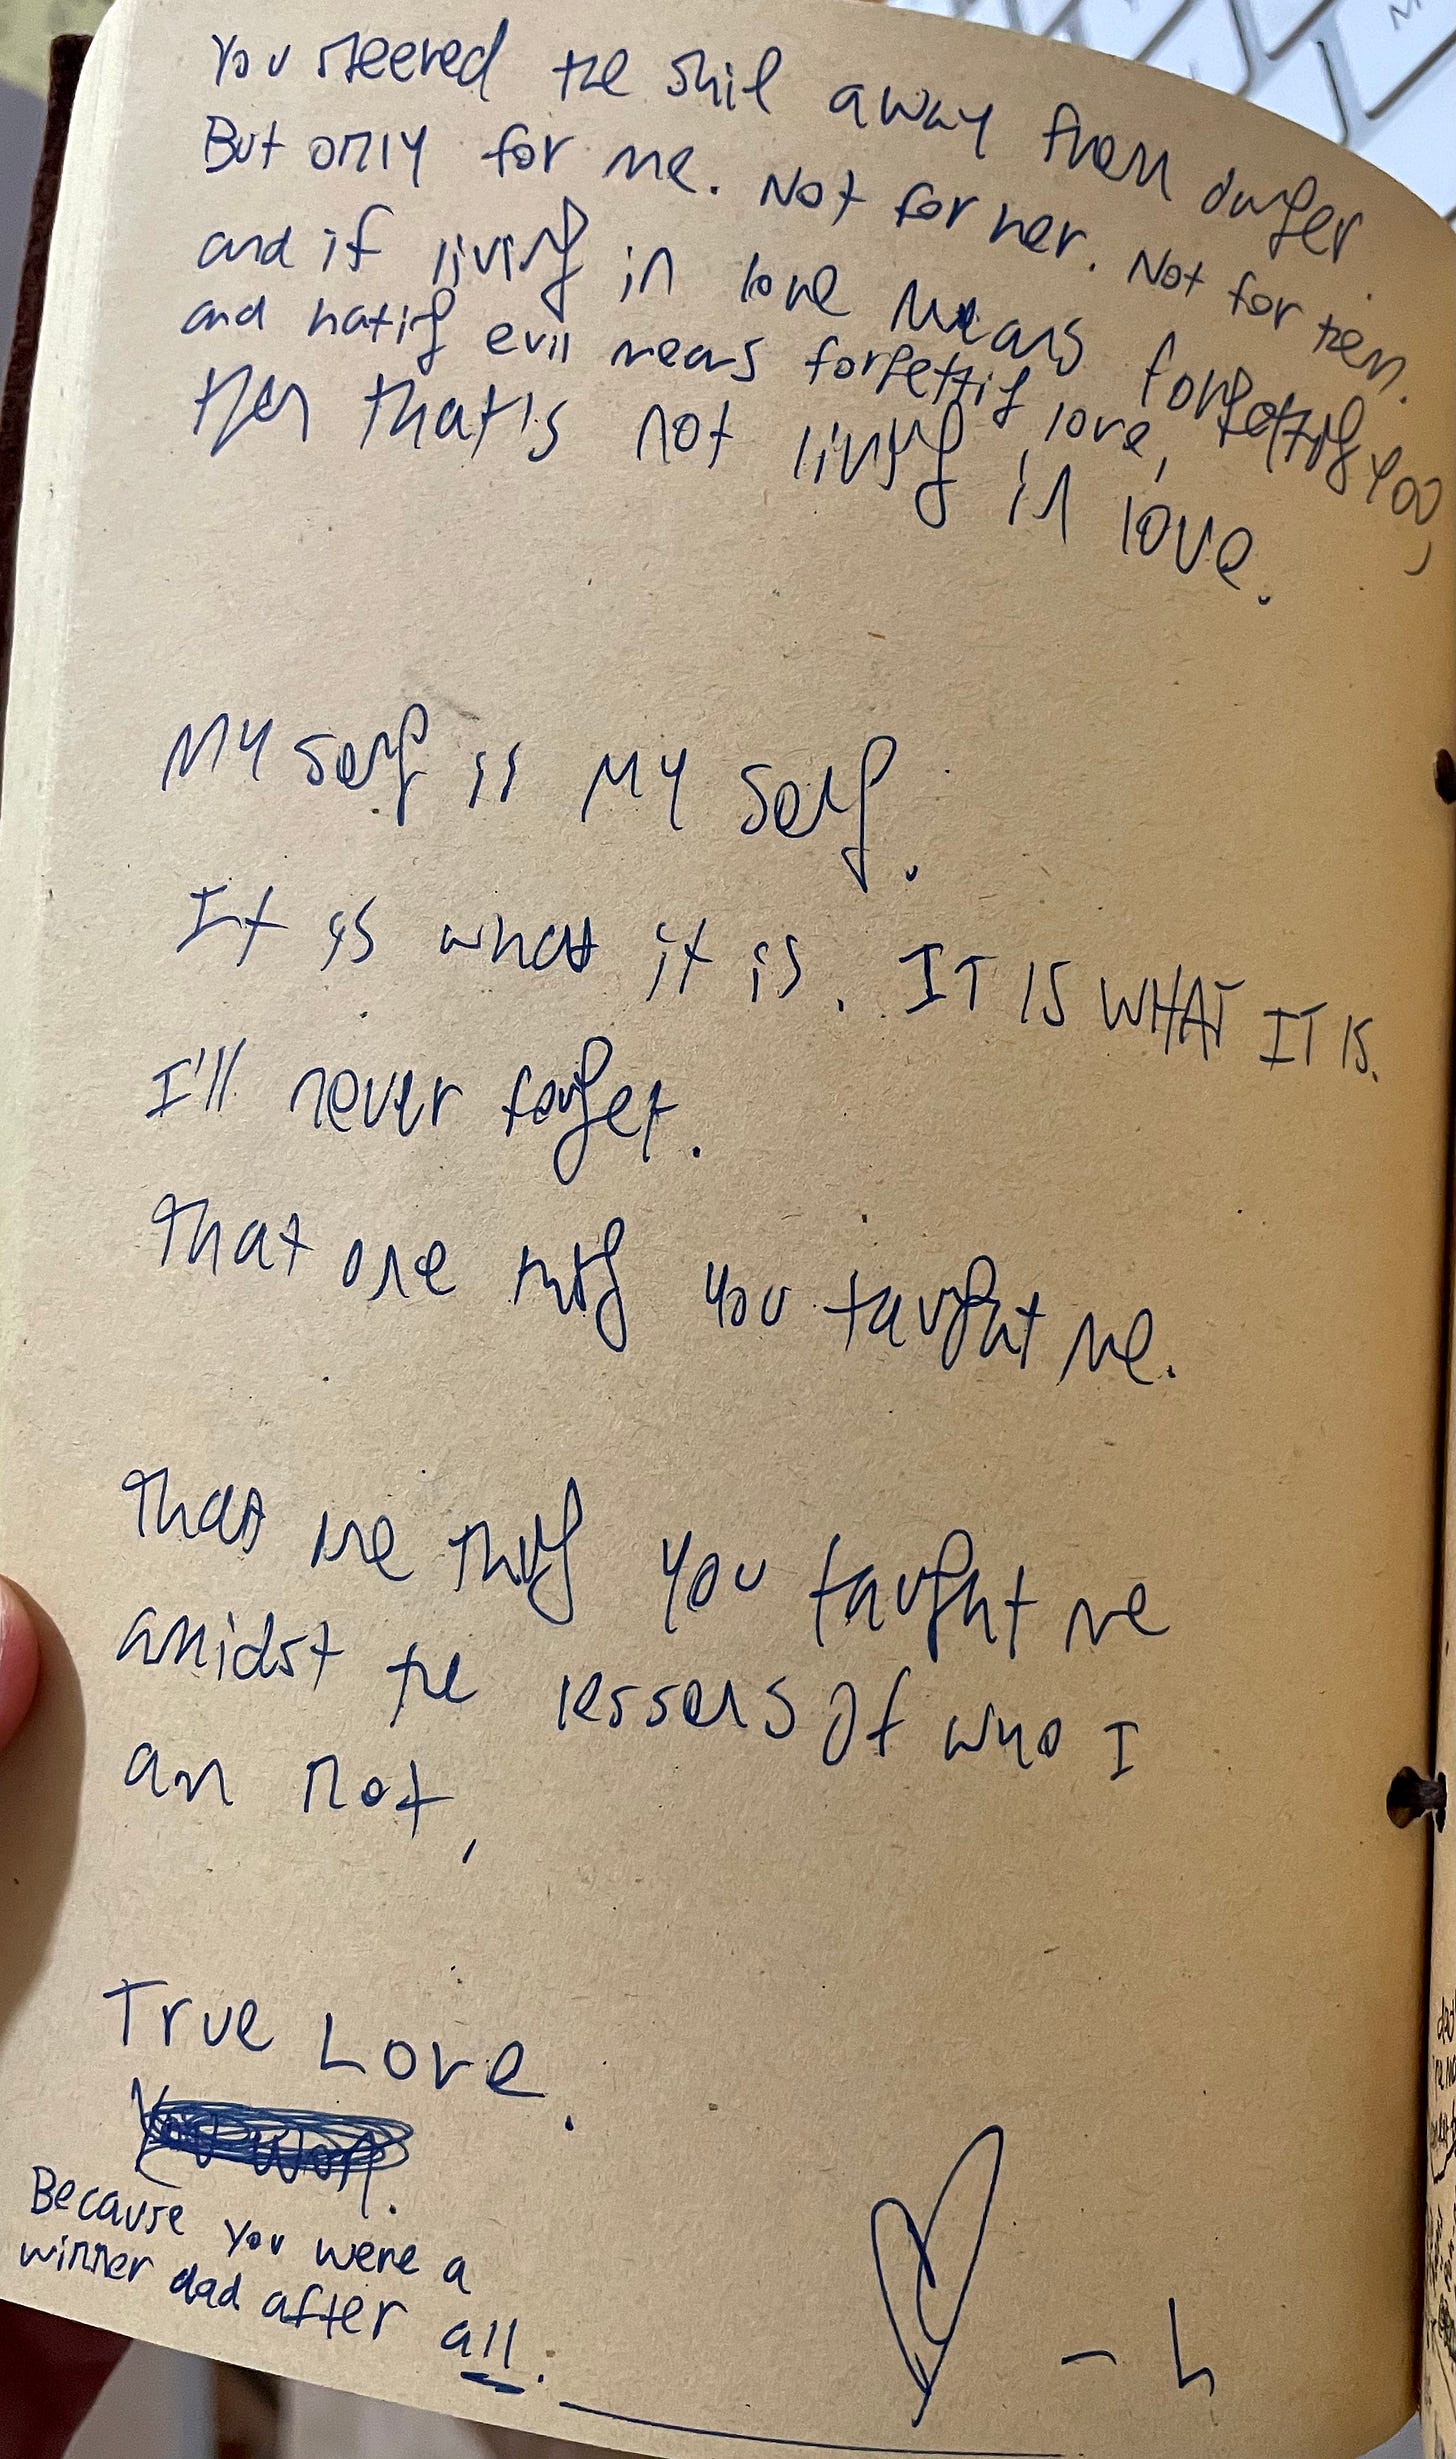 You steered the ship away from danger
But only for me. Not for her. Not for them.
and if living in love means forgetting you,
and hating evil means forgetting love,
then that's not living in love.
My self is my self.
It is what it is. IT IS WHAT IT IS.
I'll never forget.
That one thing you taught me.
That one thing you taught me
amidst the lessons of who I
am not,
True Love.
You won.
Because you were a
winner dad after all.
- L